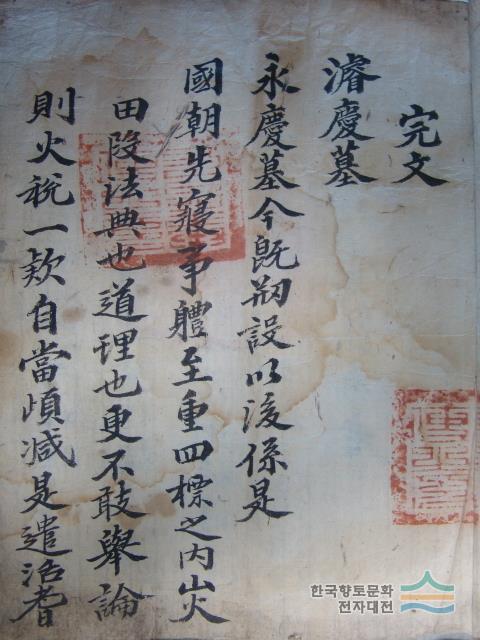 完文
濬慶墓
永慶墓今旣刱設以後係是
國朝先寢事體至重四標之内火
田段法典也道理也更不敢擧論
則火稅一款自當頉减是遣活耆
한국향토문화
전자대전